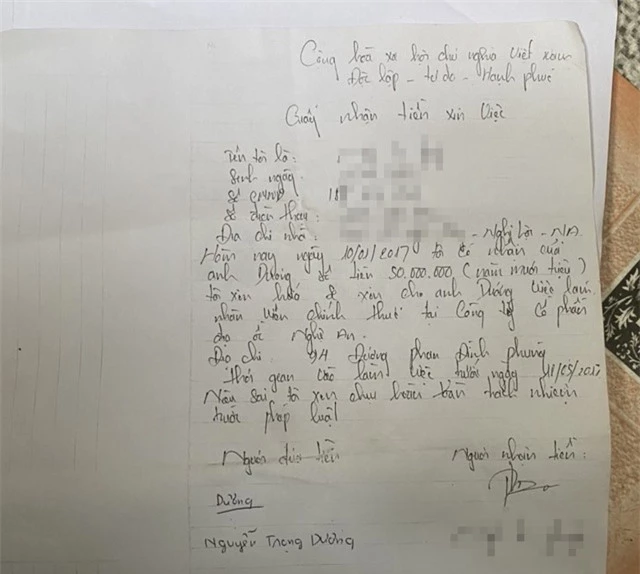 Cộng hoà xã hội chủ nghĩa Việt Nam
Độc lập - tự do - Hạnh phúc
Giấy nhận tiền xin việc
Tên tôi là:
Sinh ngày:
Số CMND 18
Số điện thoại:
Địa chỉ nhà: - Nghi Lộc - N.A.
Hôm nay ngày 10/01/2017 tôi có nhận của
anh Dương số tiền 50.000.000 (năm mươi triệu)
tôi xin hứa sẽ xin cho anh Dương việc làm
nhân viên chính thức tại Công ty cổ phần
địa ốc Nghệ An.
Địa chỉ 9A Đường phan Đình phùng
Thời gian vào làm việc trước ngày 11/05/2017
Nếu sai tôi xin chịu hoàn toàn trách nhiệm
trước pháp luật
Người đưa tiền Người nhận tiền:
Dương
Nguyễn Trọng Dương